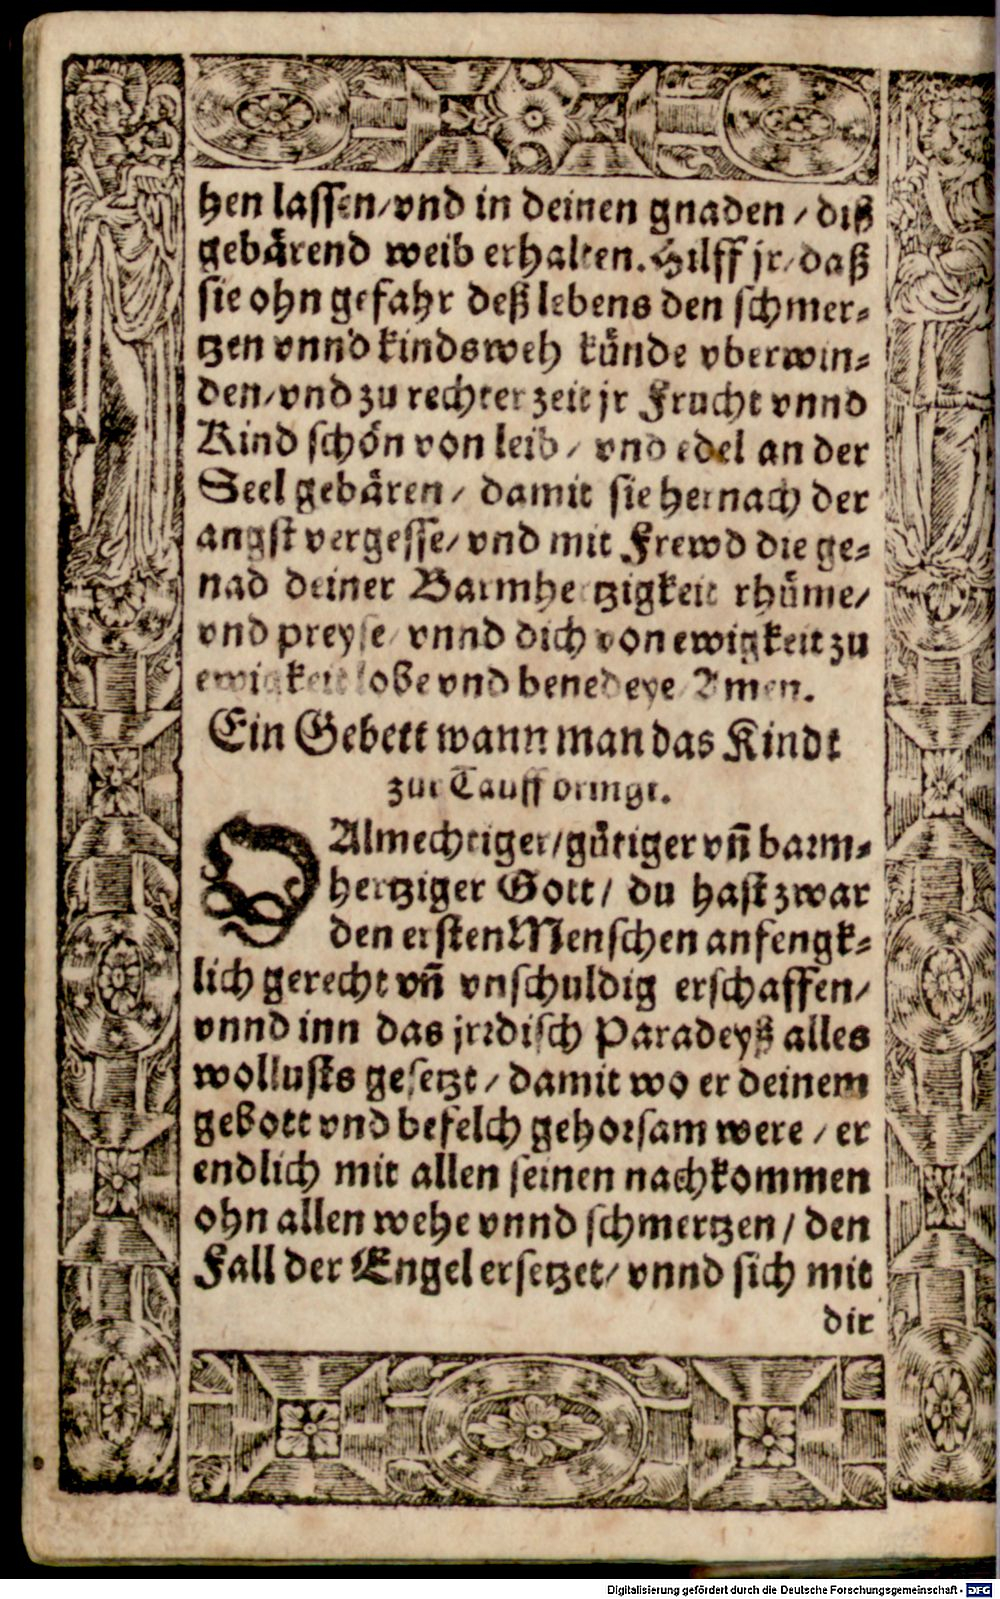 hen lassen/vnd in deinen gnaden / diß
gebärend weib erhalten. Hilff jr/daß
sie ohn gefahr deß lebens den schmer-
tzen vnnd kindsweh künde vberwin-
den/vnd zu rechter zeit jr Frucht vnnd
Kind schön von leib / vnd edel an der
Seel gebären / damit sie hernach der
angst vergesse/ vnd mit Frewd die ge-
nad deiner Barmhertzigkeit rhüme/
vnd preyse/ vnnd dich von ewigkeit zu
ewigkeit lobe vnd benedeye/ Amen.
Ein Gebett wann man das Kindt
zur Tauff bringt.
O Almechtiger/gütiger vñ barm-
hertziger Gott / du hast zwar
den ersten Menschen anfengk-
lich gerecht vñ vnschuldig erschaffen/
vnnd inn das jrrdisch Paradeyß alles
wollusts gesetzt / damit wo er deinem
gebott vnd befelch gehorsam were / er
endlich mit allen seinen nachkommen
ohn allen wehe vnnd schmertzen / den
Fall der Engel ersetzet/ vnnd sich mit
dir
Digitalisierung gefördert durch die Deutsche Forschungsgemeinschaft - DFG